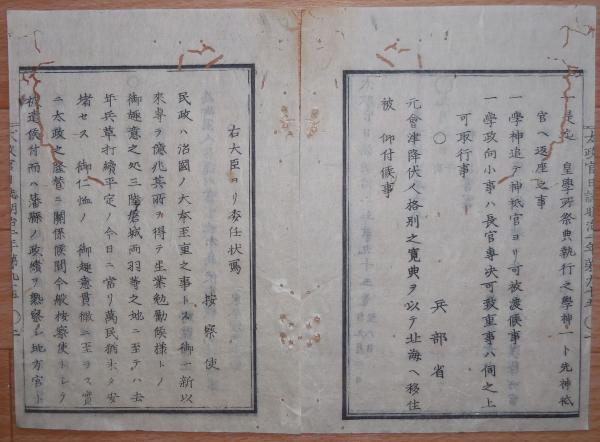 一是迄 皇學所祭典執行之學神一ト先神祇
官ヘ遷座之事
一學神追テ神祇官ヨリ可被渡候事
一學政向小事ハ長官専决可致重事ハ伺之上
可取行事
○
兵部省
元會津降伏人格別之寛典ヲ以テ北海ヘ移住
被 仰付候事
○
按察使
右大臣ヨリ委任状寫
民政ハ治國ノ大本至重之事トス御一新以
來専ラ億兆其所ヲ得テ生業勉勵候樣トノ
御趣意之処三陸磐城両羽等之地ニ至テハ去
年兵革打續平定ノ今日ニ當リ萬民猶未タ安
堵セス 御仁恤ノ 御趣意貫徹ニ至ラス實
ニ太政之隆替ニ關係候間今般按察使トシテ
被差遣候付而ハ藩縣ノ政績ヲ觀察シ地方官ト